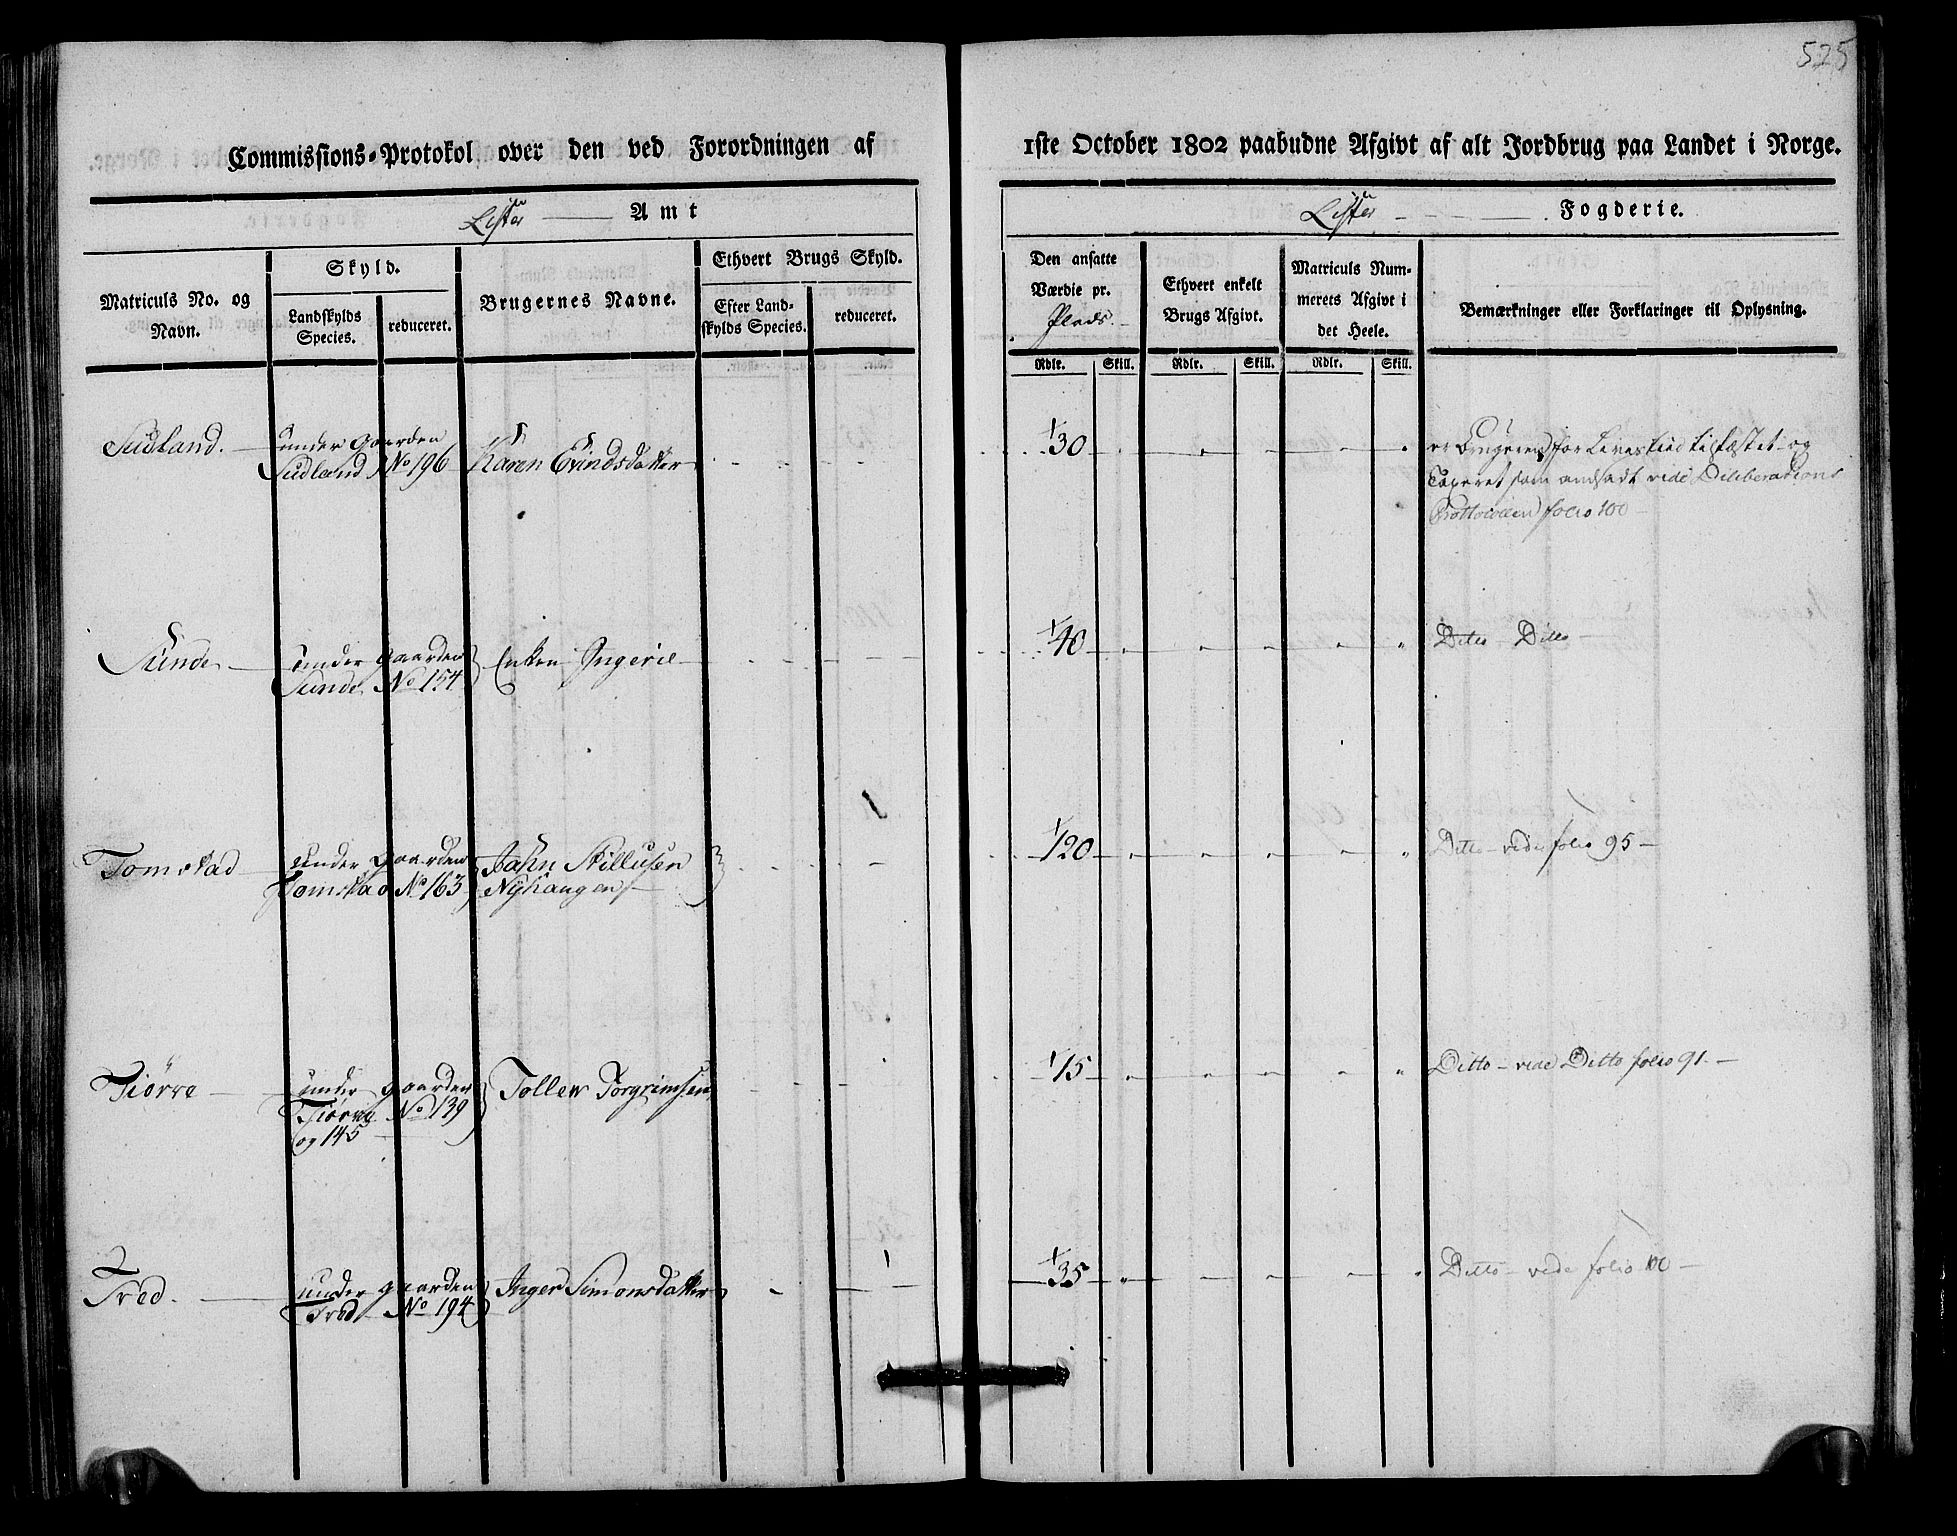 525
Commissions-Protokol over den ved Forordningen af 1ste October 1802 paabudne Afgivt af alt Jordbrug paa Landet i Norge.
Lister Amt
Lister Fogderie.
Matriculs No. og Navn.
Skyld.
Landskylds Species.
reduceret.
Brugernes Navne.
Ethvert Brugs Skyld.
Efter Landskylds Species.
reduceret.
Den ansatte Værdie pr. Plads.
Ethvert enkelt Brugs Afgivt.
Matriculs Nummerets Afgivt i det Heele.
Bemærkninger eller Forklaringer til Oplysning.
Rdlr. Skill. Rdlr. Skill. Rdlr. Skill.
Sudland. under gaarden Karen Evindsdatter 30 er Brugeren for Levestiid tilfæstet og
Sudland No 196 Taxeret som andsadt vide Deliberations
Prottocollen folio 100
Sunde under gaarden Enken Ingerie 40 Ditto Ditto
Sunde No 154
Tomstad under gaarden Jahn Skillusen 120 Ditto vide folio 95
Tomstad No 163 Nyhaugen
Tiørve under gaarden Tollew Torgrimsen 15 Ditto vide Ditto folio 91
Tiørve No 139
og 145
Tred. under gaarden Inger Simonsdatter 35 Ditto vide folio 100
Tred No 194